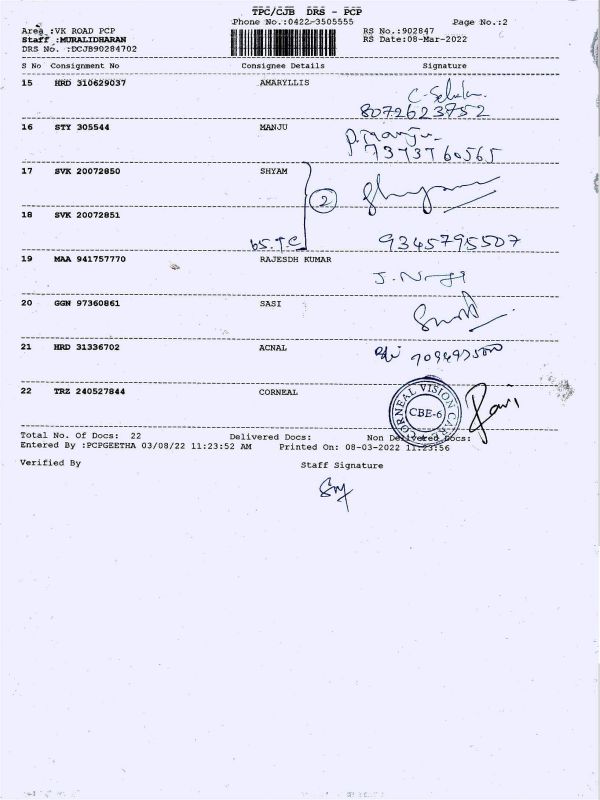 TPC/CJB DRS - PCP
Phone No.:0422-3505555 Page No.:2
Area :VK ROAD PCP RS No.:902847
Staff :MURALIDHARAN RS Date:08-Mar-2022
DRS No. :DCJB90284702
S No Consignment No Consignee Details Signature
15 HRD 310629037 AMARYLLIS
8072623752
16 STY 305544 MANJU
P. Manju
7373760565
17 SVK 20072850 SHYAM
2 Shyam
18 SVK 20072851
9345795507
19 MAA 941757770 RAJESDH KUMAR
20 GGN 97360861 SASI
21 HRD 31336702 ACNAL
22 TRZ 240527844 CORNEAL
CORNEAL VISION CARE
CBE-6
Total No. Of Docs: 22 Delivered Docs: Non Delivered Docs:
Entered By :PCPGEETHA 03/08/22 11:23:52 AM Printed On: 08-03-2022 11:23:56
Verified By Staff Signature